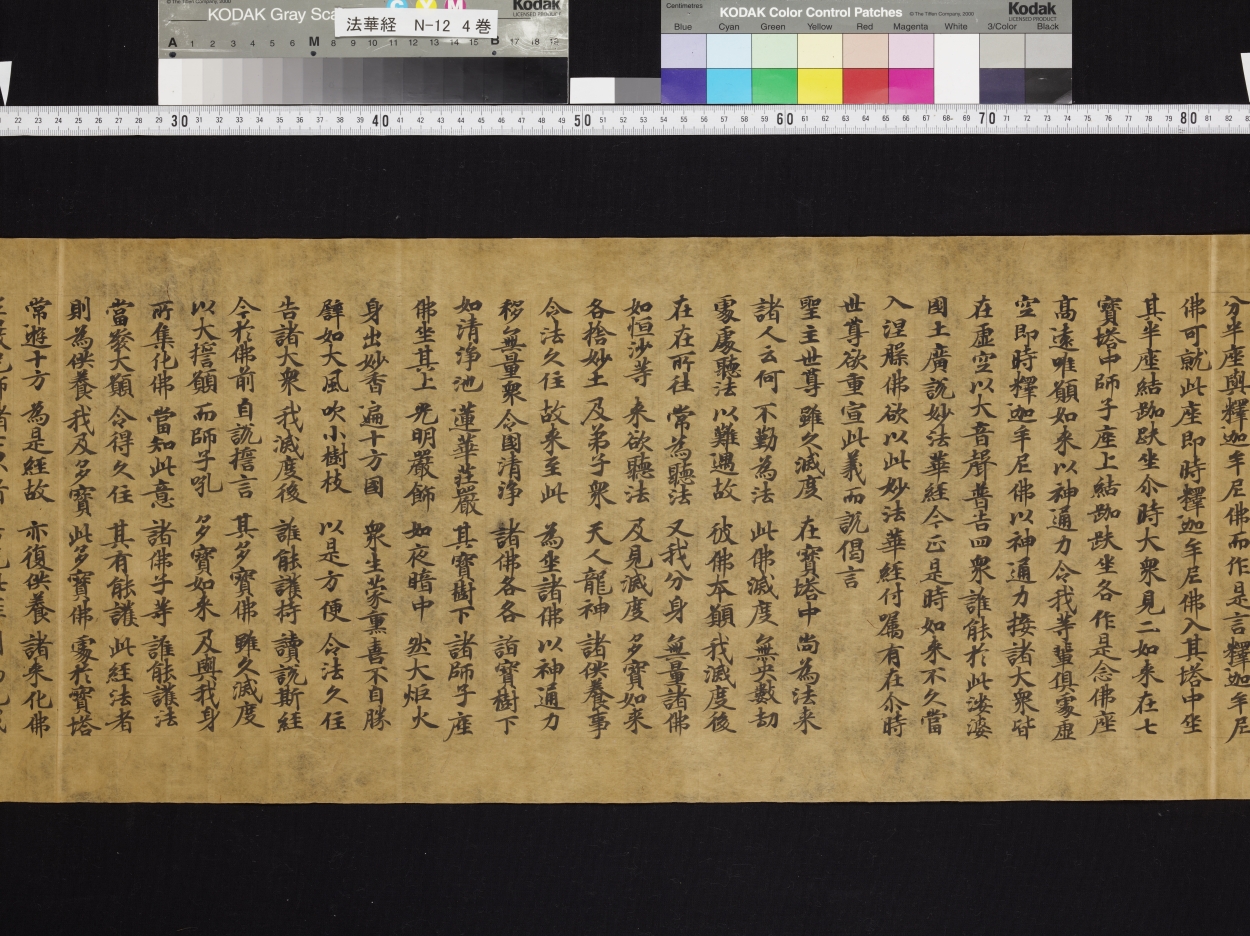 © The Tiffen Company, 2000
KODAK Gray Scale
C Y M
Kodak
LICENSED PRODUCT
法華経 N-12 4巻
A 1 2 3 4 5 6 M 8 9 10 11 12 13 14 15 B 17 18 19
Centimetres
KODAK Color Control Patches © The Tiffen Company, 2000
Kodak
LICENSED PRODUCT
Blue Cyan Green Yellow Red Magenta White 3/Color Black
22 23 24 25 26 27 28 29 30 31 32 33 34 35 36 37 38 39 40 41 42 43 44 45 46 47 48 49 50 51 52 53 54 55 56 57 58 59 60 61 62 63 64 65 66 67 68 69 70 71 72 73 74 75 76 77 78 79 80 81 82
分半座與釋迦牟尼佛而作是言釋迦牟尼
佛可就此座即時釋迦牟尼佛入其塔中坐
其半座結跏趺坐尒時大衆見二如来在七
寶塔中師子座上結跏趺坐各作是念佛座
高遠唯願如来以神通力令我等輩俱處虛
空即時釋迦牟尼佛以神通力接諸大衆皆
在虛空以大音聲普告四衆誰能於此娑婆
國土廣説妙法華経今正是時如来不久當
入涅縣佛欲以此妙法華経付囑有在尒時
世尊欲重宣此義而説偈言
聖主世尊 雖久滅度 在寶塔中 尚為法来
諸人云何 不勤為法 此佛滅度 無央數劫
處處聽法 以難遇故 彼佛本願 我滅度後
在在所往 常為聽法 又我分身 無量諸佛
如恒沙等 来欲聽法 及見滅度 多寶如来
各捨妙土 及弟子衆 天人龍神 諸供養事
令法久住 故来至此 為坐諸佛 以神通力
移無量衆 令國清淨 諸佛各各 詣寶樹下
如清淨池 蓮華莊嚴 其寶樹下 諸師子座
佛坐其上 光明嚴飾 如夜暗中 然大炬火
身出妙香 遍十方國 衆生蒙熏 喜不自勝
辟如大風 吹小樹枝 以是方便 令法久住
告諸大衆 我滅度後 誰能護持 讀説斯経
今於佛前 自説擔言 其多寶佛 雖久滅度
以大擔願 而師子吼 多寶如来 及與我身
所集化佛 當知此意 諸佛子等 誰能護法
當發大願 令得久住 其有能護 此経法者
則為供養 我及多寶 此多寶佛 處於寶塔
常遊十方 為是経故 亦復供養 諸来化佛